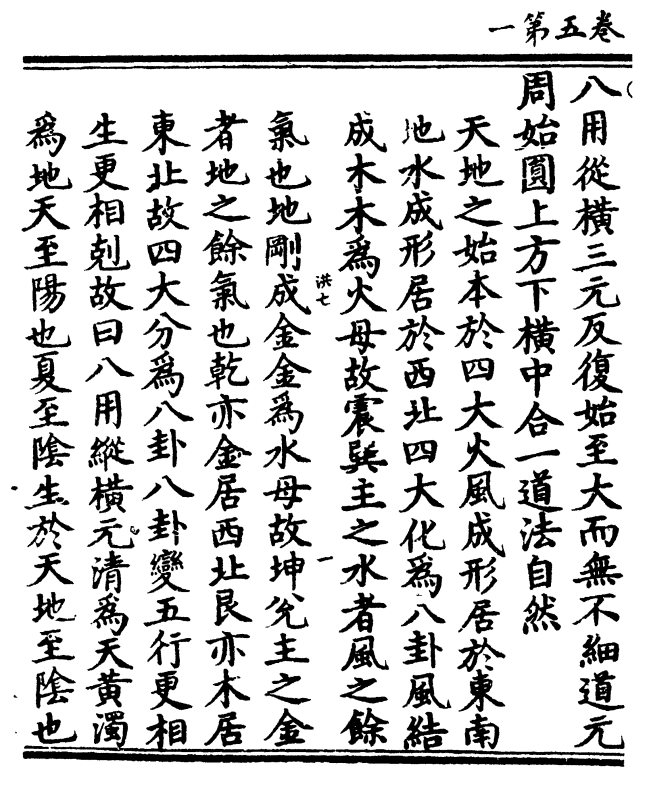 卷五第一
八用從橫三元反復始至大而無不細道元
周始圓上方下橫中合一道法自然
天地之始本於四大火風成形居於東南
地水成形居於西北四大化爲八卦風結
成木木爲火母故震巽主之水者風之餘
氣也地剛成金金爲水母故坤兊主之金
洪七
一
者地之餘氣也乾亦金居西北艮亦木居
東北故四大分爲八卦八卦變五行更相
生更相剋故曰八用縱橫元清爲天黃濁
爲地天至陽也夏至陰生於天地至陰也